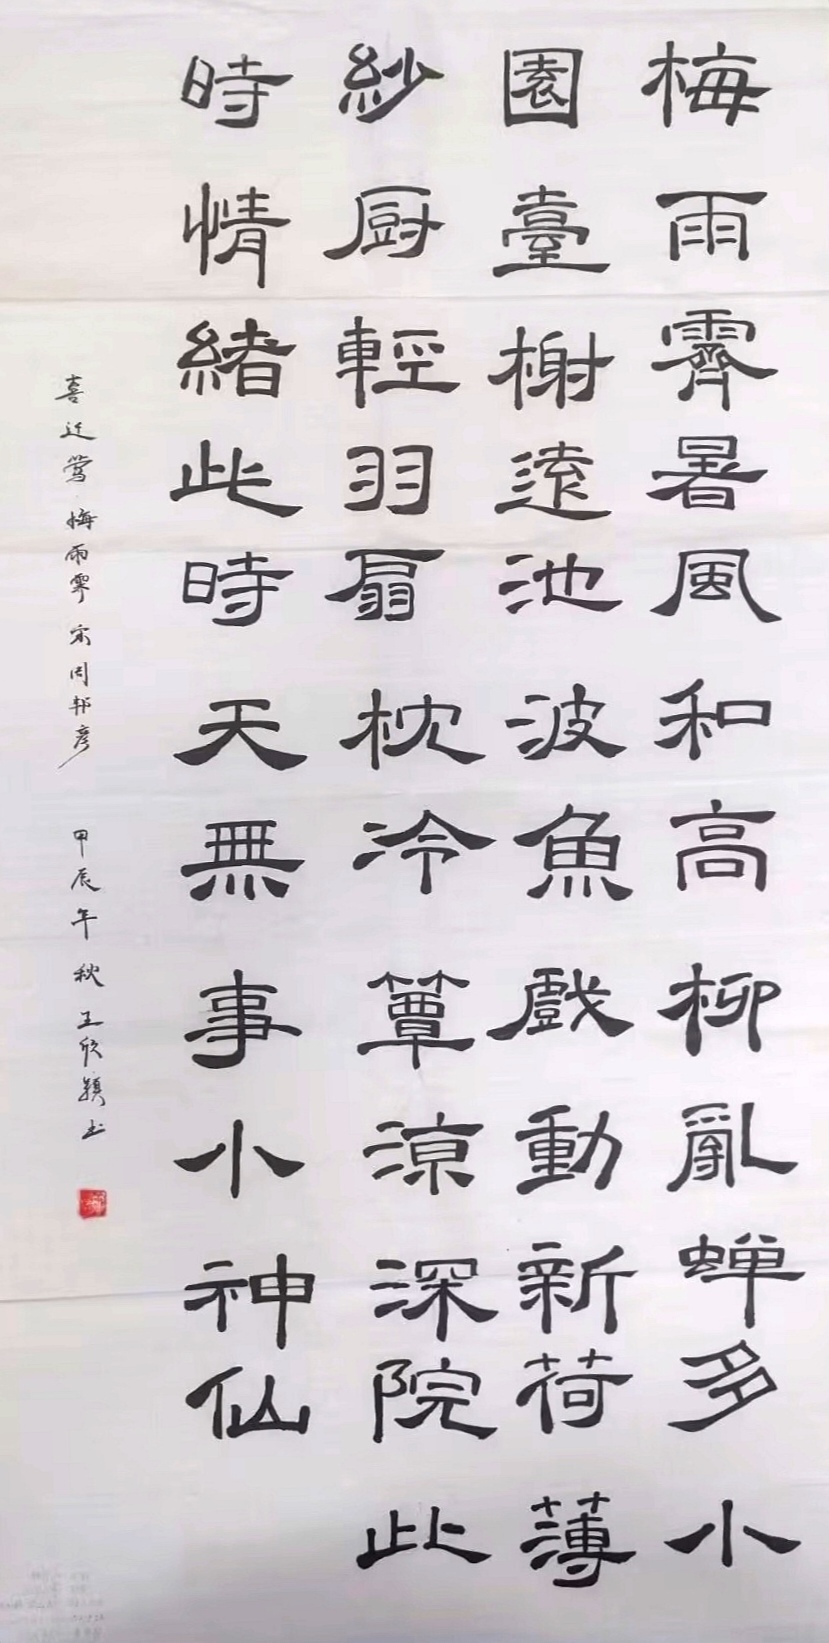 梅雨霽暑風和高柳亂蝉多小
園臺榭遠池波魚戲動新荷薄
紗厨輕羽扇枕冷簟凉深院此
時情緒此時天無事小神仙
喜迁莺·梅雨霽 宋周邦彦 甲辰年秋王欣颖书